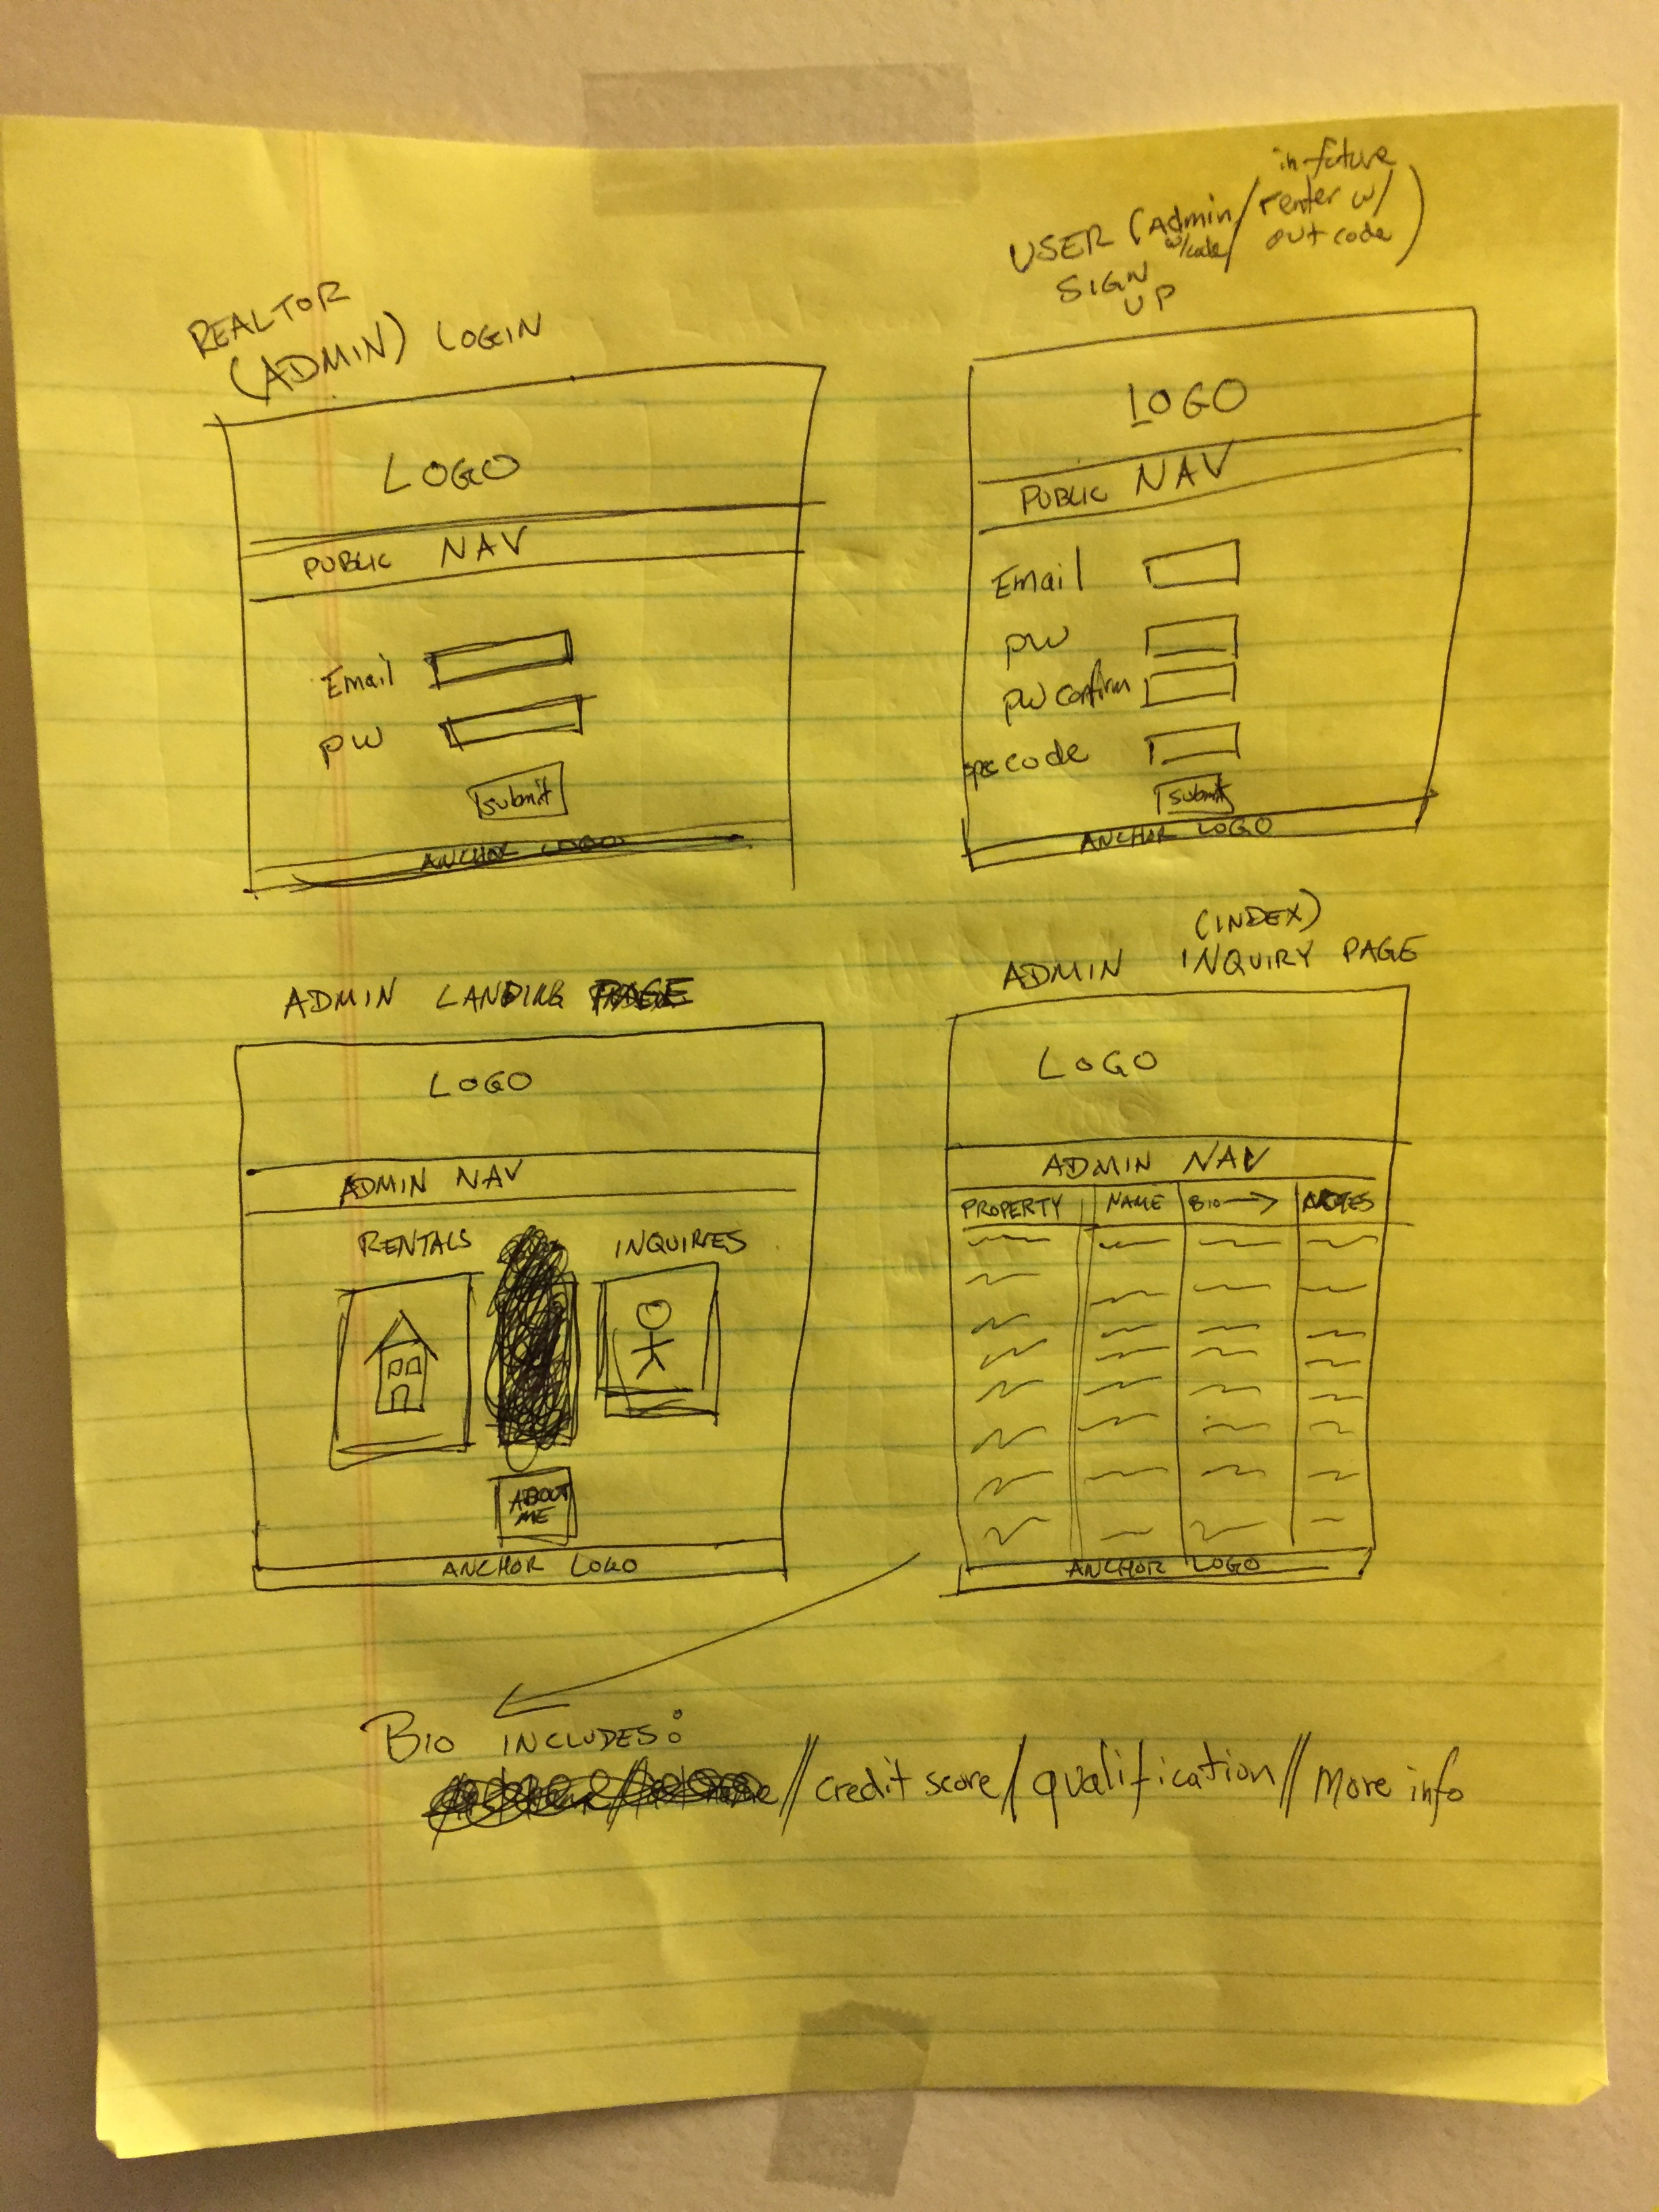 REALTOR
(ADMIN) LOGIN
LOGO
PUBLIC NAV
Email
PW
submit
ANCHOR LOGO
in future
USER (Admin / renter w/
w/code out code)
SIGN
UP
LOGO
PUBLIC NAV
Email
PW
PW confirm
spec code
submit
ANCHOR LOGO
ADMIN LANDING PAGE
LOGO
ADMIN NAV
RENTALS INQUIRIES
ABOUT
ME
ANCHOR LOGO
(INDEX)
ADMIN INQUIRY PAGE
LOGO
ADMIN NAV
PROPERTY NAME BIO → NOTES
ANCHOR LOGO
BIO INCLUDES:
// credit score / qualification // More info